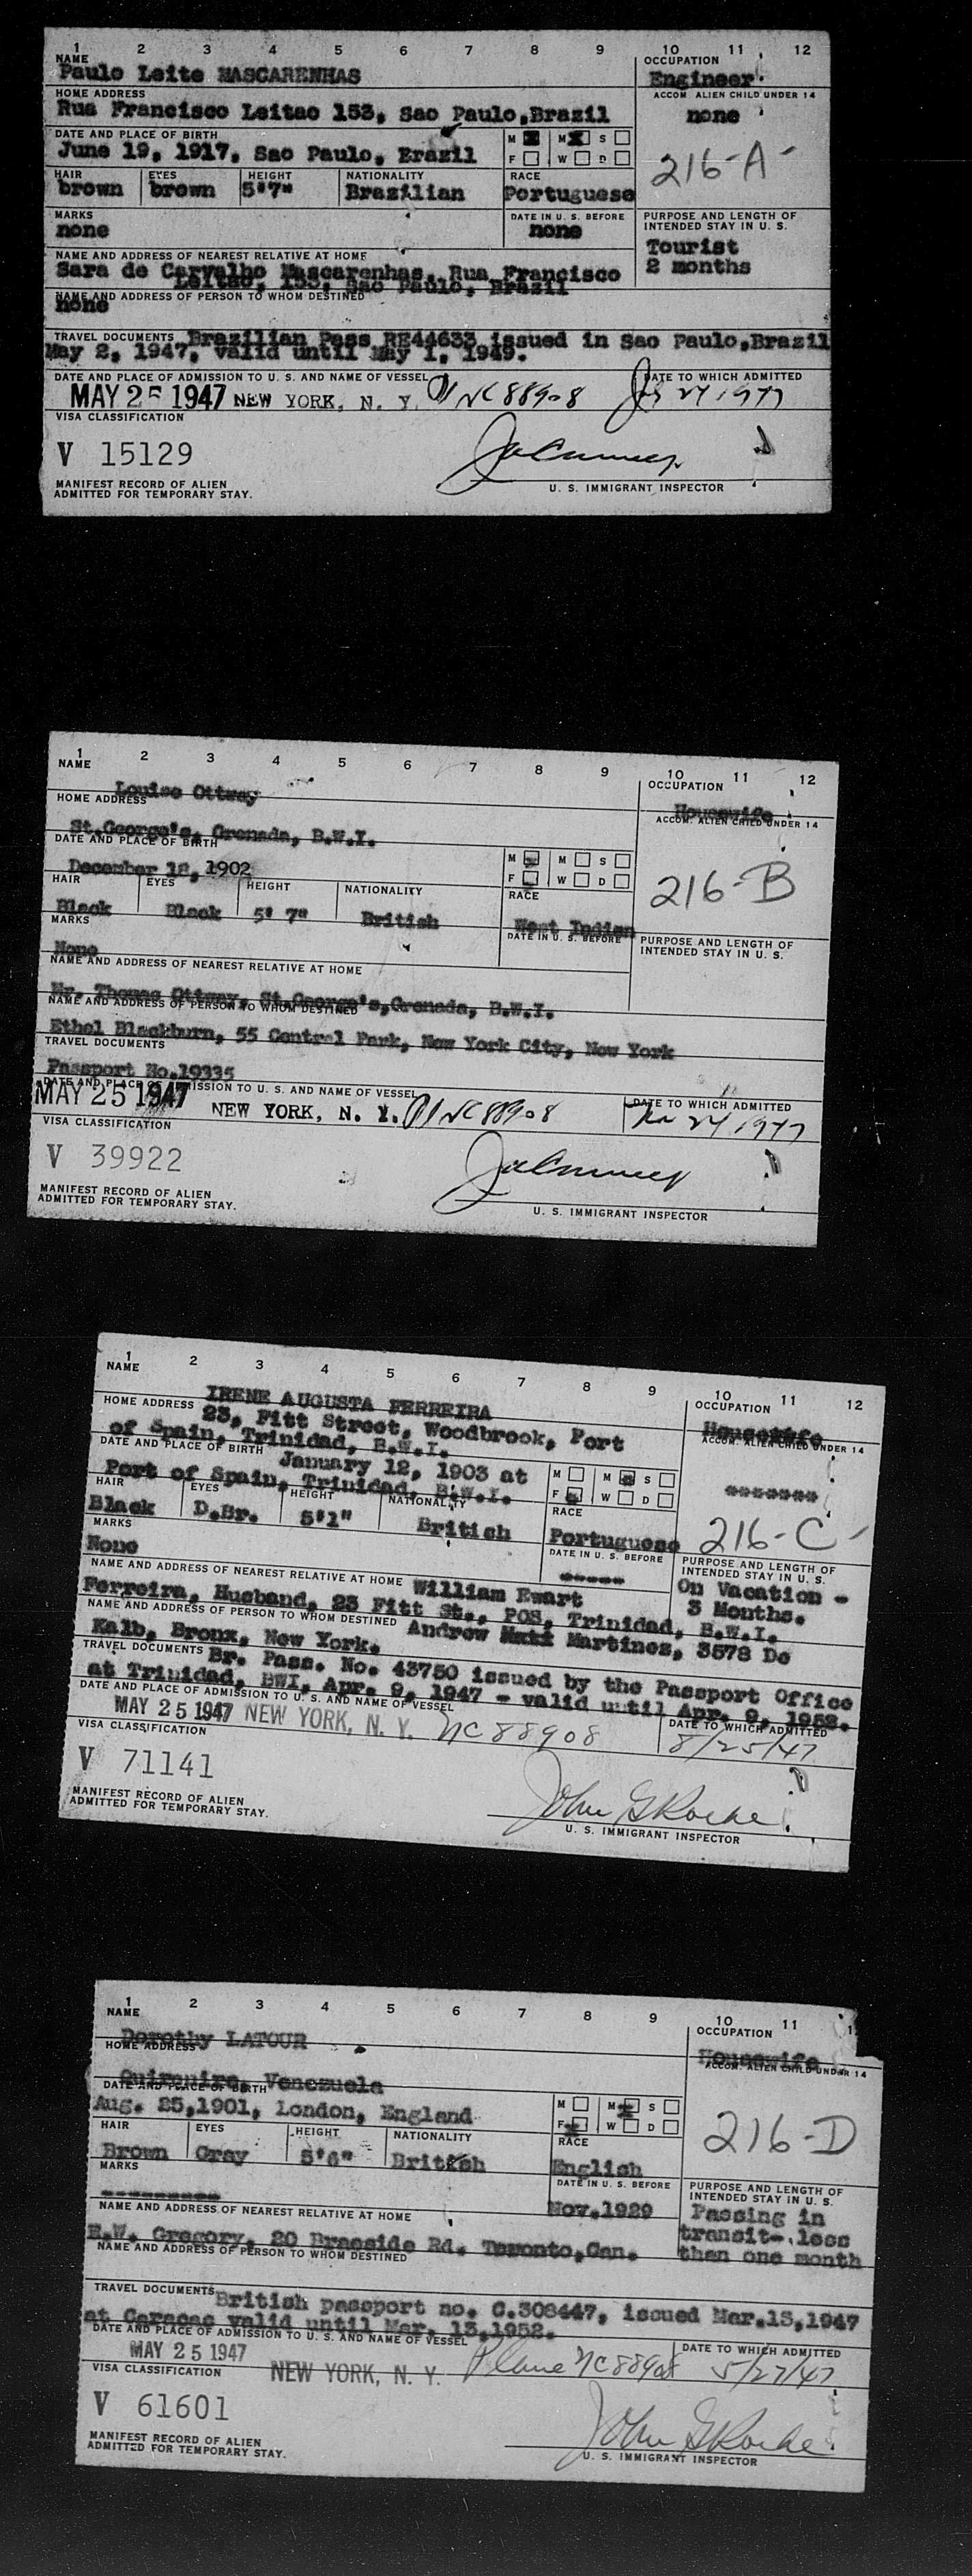 1 2 3 4 5 6 7 8 9 10 11 12
NAME OCCUPATION
Paulo Leite MASCARENHAS Engineer
HOME ADDRESS ACCOM. ALIEN CHILD UNDER 14
Rua Francisco Leitao 153, Sao Paulo,Brazil none
DATE AND PLACE OF BIRTH M M S
June 19, 1917, Sao Paulo, Brazil F W D
216-A-
HAIR EYES HEIGHT NATIONALITY RACE
brown brown 5'7" Brazilian Portuguese
MARKS DATE IN U. S. BEFORE PURPOSE AND LENGTH OF INTENDED STAY IN U. S.
none none Tourist
2 months
NAME AND ADDRESS OF NEAREST RELATIVE AT HOME
Sara de Carvalho Mascarenhas, Rua Francisco
Leitao, 153, Sao Paulo, Brazil
NAME AND ADDRESS OF PERSON TO WHOM DESTINED
none
TRAVEL DOCUMENTS Brazilian Pass RE44633 issued in Sao Paulo,Brazil
May 2, 1947, valid until May 1, 1949.
DATE AND PLACE OF ADMISSION TO U. S. AND NAME OF VESSEL DATE TO WHICH ADMITTED
MAY 25 1947 NEW YORK, N. Y. NC 88908 24, 1947
VISA CLASSIFICATION
V 15129
MANIFEST RECORD OF ALIEN
ADMITTED FOR TEMPORARY STAY. U. S. IMMIGRANT INSPECTOR
1 2 3 4 5 6 7 8 9 10 11 12
NAME OCCUPATION
Louise Ottway Housewife
HOME ADDRESS ACCOM. ALIEN CHILD UNDER 14
St.George's, Grenada, B.W.I.
DATE AND PLACE OF BIRTH M M S
December 18, 1902 F W D
216-B
HAIR EYES HEIGHT NATIONALITY RACE
Black Black 5' 7" British West Indian
MARKS DATE IN U. S. BEFORE PURPOSE AND LENGTH OF INTENDED STAY IN U. S.
None
NAME AND ADDRESS OF NEAREST RELATIVE AT HOME
Mr. Thomas Ottway, St.George's,Grenada, B.W.I.
NAME AND ADDRESS OF PERSON TO WHOM DESTINED
Ethel Blackburn, 55 Central Park, New York City, New York
TRAVEL DOCUMENTS
Passport No.19335
DATE AND PLACE OF ADMISSION TO U. S. AND NAME OF VESSEL DATE TO WHICH ADMITTED
MAY 25 1947 NEW YORK, N. Y. NC 88908 24, 1947
VISA CLASSIFICATION
V 39922
MANIFEST RECORD OF ALIEN
ADMITTED FOR TEMPORARY STAY. U. S. IMMIGRANT INSPECTOR
1 2 3 4 5 6 7 8 9 10 11 12
NAME OCCUPATION
IRENE AUGUSTA FERREIRA Housewife
HOME ADDRESS 23, Fitt Street, Woodbrook, Port ACCOM. ALIEN CHILD UNDER 14
of Spain, Trinidad, B.W.I.
DATE AND PLACE OF BIRTH January 12, 1903 at M M S
Port of Spain, Trinidad, B.W.I. F W D
216-C-
HAIR EYES HEIGHT NATIONALITY RACE
Black D.Br. 5'1" British Portuguese
MARKS DATE IN U. S. BEFORE PURPOSE AND LENGTH OF INTENDED STAY IN U. S.
None On Vacation -
3 Months.
NAME AND ADDRESS OF NEAREST RELATIVE AT HOME William Ewart
Ferreira, Husband, 23 Fitt St., POS, Trinidad, B.W.I.
NAME AND ADDRESS OF PERSON TO WHOM DESTINED Andrew Martinez, 3578 De
Kalb, Bronx, New York.
TRAVEL DOCUMENTS Br. Pass. No. 43750 issued by the Passport Office
at Trinidad, BWI, Apr. 9, 1947 - valid until Apr. 9, 1952.
DATE AND PLACE OF ADMISSION TO U. S. AND NAME OF VESSEL DATE TO WHICH ADMITTED
MAY 25 1947 NEW YORK, N. Y. NC 88908 8/25/47
VISA CLASSIFICATION
V 71141
John G Roche
MANIFEST RECORD OF ALIEN
ADMITTED FOR TEMPORARY STAY. U. S. IMMIGRANT INSPECTOR
1 2 3 4 5 6 7 8 9 10 11
NAME OCCUPATION
Dorothy LATOUR Housewife
HOME ADDRESS ACCOM. ALIEN CHILD UNDER 14
Quiriquire, Venezuela
DATE AND PLACE OF BIRTH M M S
Aug. 25,1901, London, England F W D
216-D
HAIR EYES HEIGHT NATIONALITY RACE
Brown Gray 5'6" British English
MARKS DATE IN U. S. BEFORE PURPOSE AND LENGTH OF INTENDED STAY IN U. S.
Nov.1929 Passing in
transit-less
than one month
NAME AND ADDRESS OF NEAREST RELATIVE AT HOME
E.W. Gregory, 20 Braeside Rd. Toronto,Can.
NAME AND ADDRESS OF PERSON TO WHOM DESTINED
TRAVEL DOCUMENTS British passport no. C.308447, issued Mar.13,1947
at Caracas valid until Mar. 13,1952.
DATE AND PLACE OF ADMISSION TO U. S. AND NAME OF VESSEL DATE TO WHICH ADMITTED
MAY 25 1947 NEW YORK, N. Y. Plane NC 88908 5/27/47
VISA CLASSIFICATION
V 61601
John G Roche
MANIFEST RECORD OF ALIEN
ADMITTED FOR TEMPORARY STAY. U. S. IMMIGRANT INSPECTOR